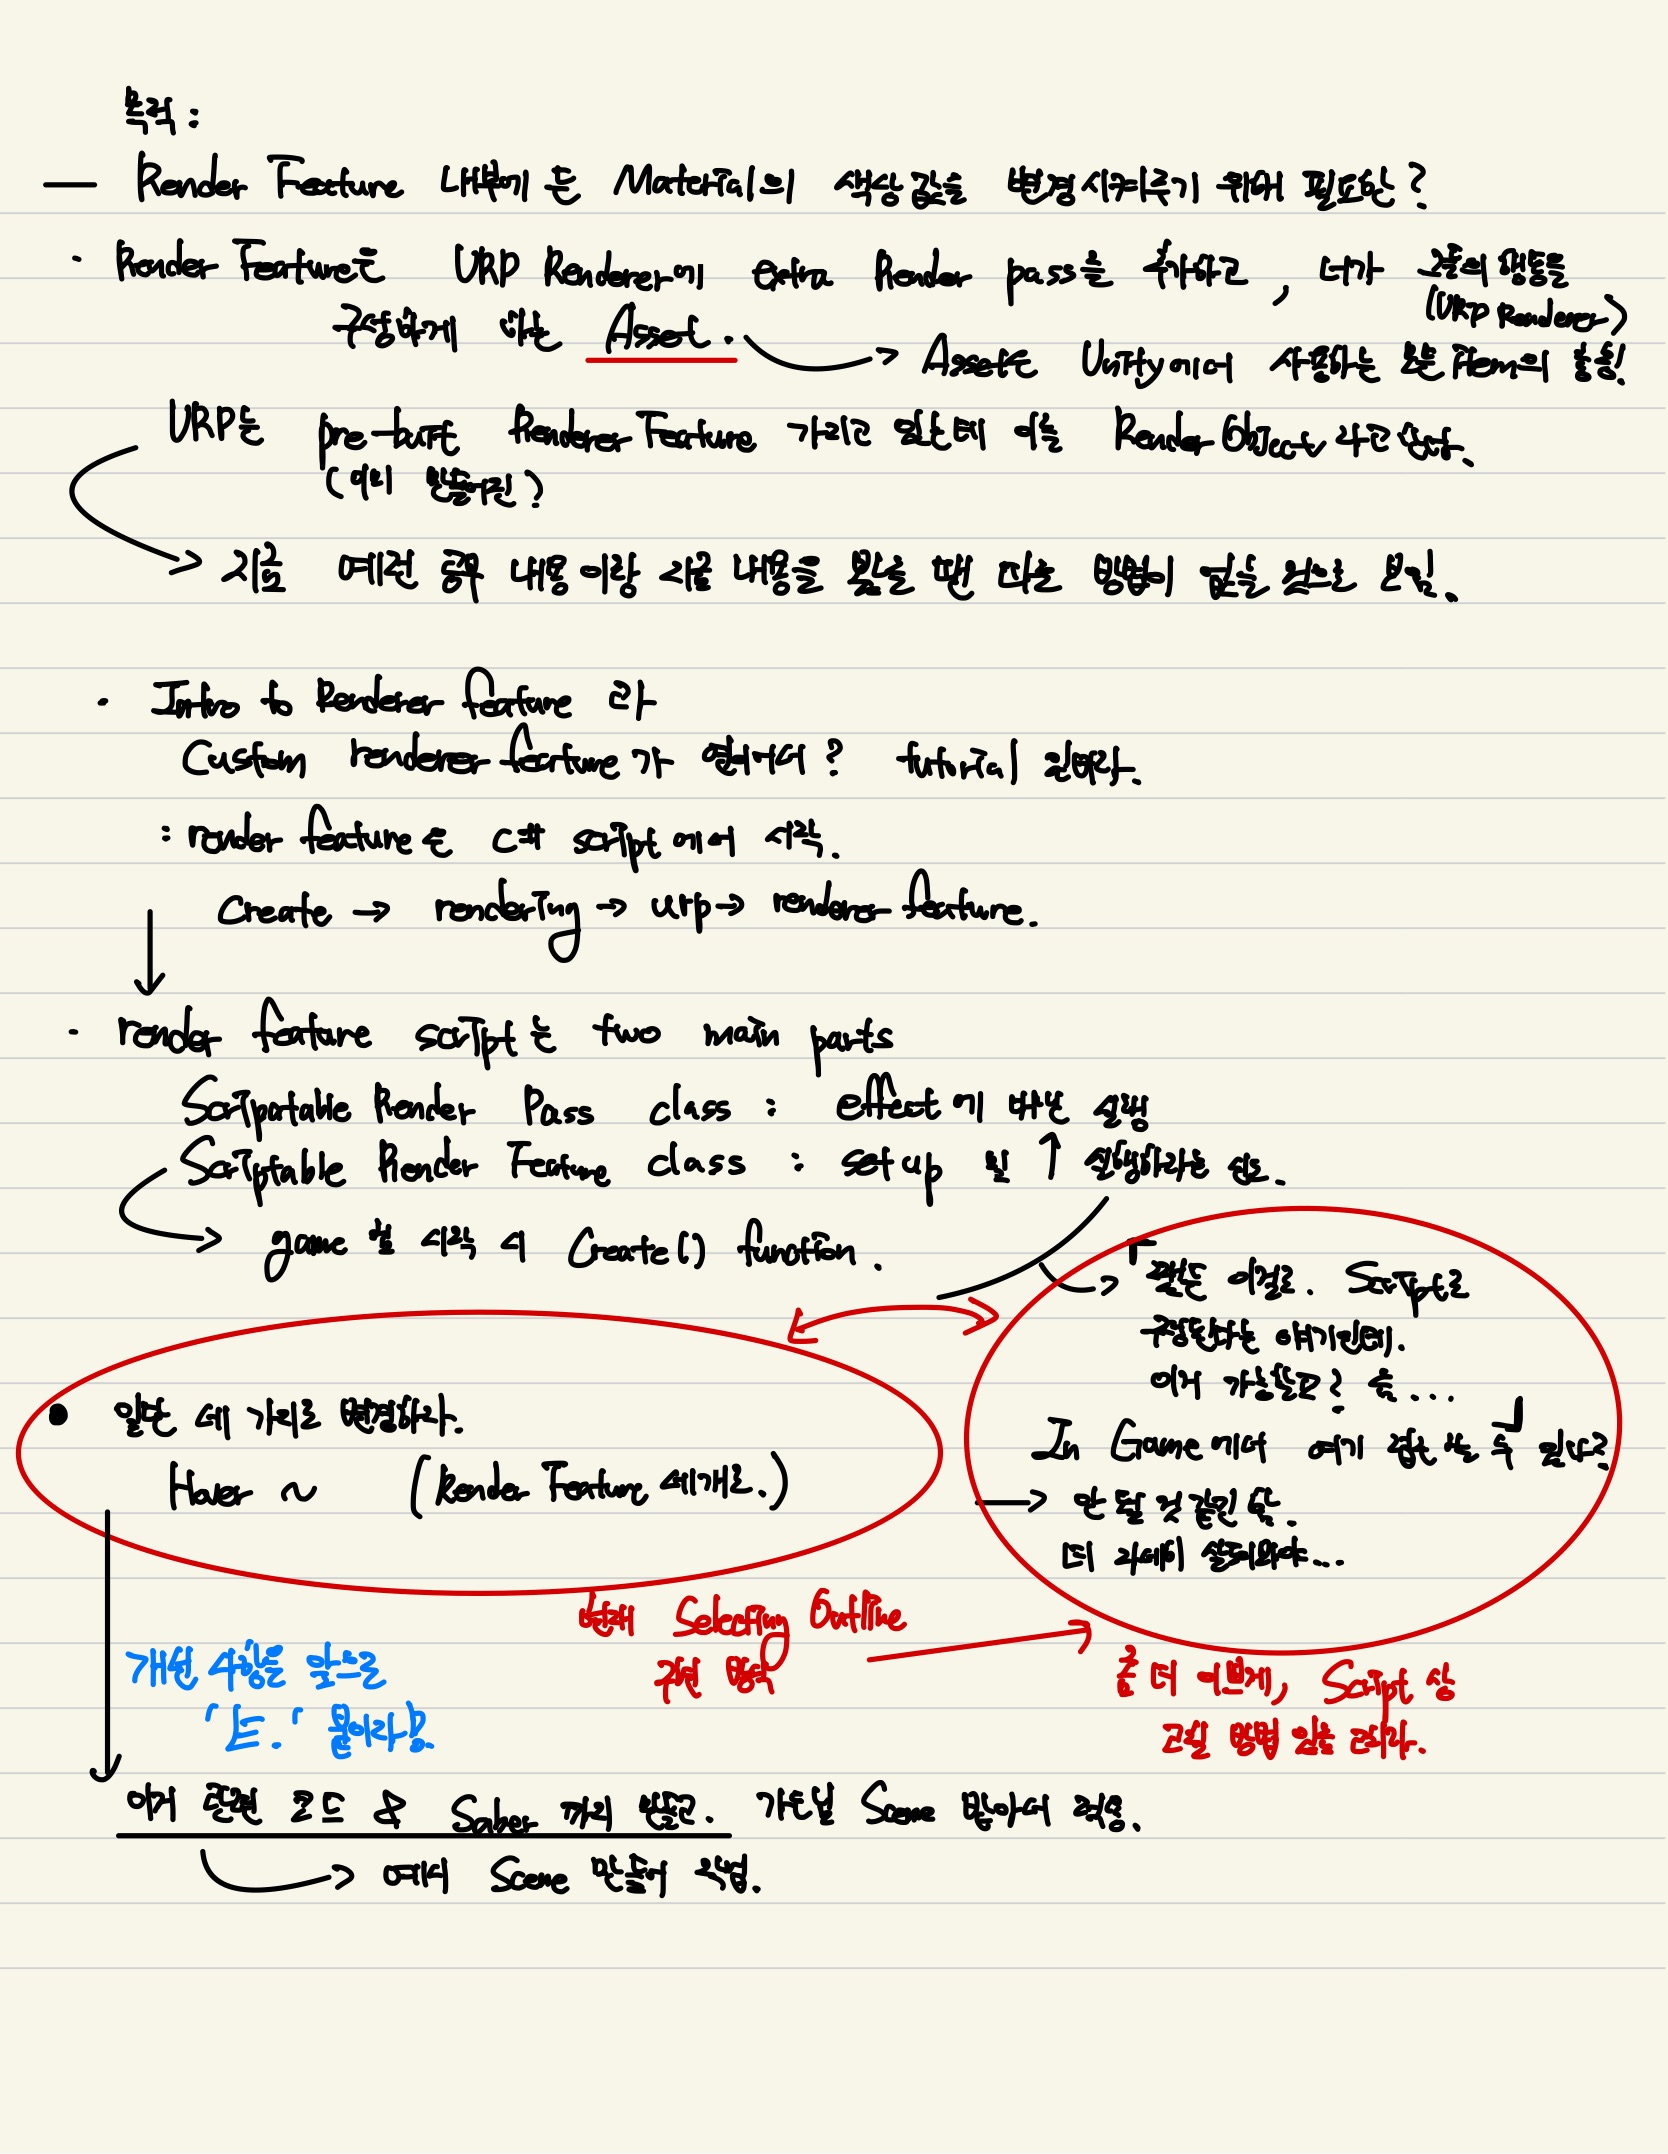 목적 :
— Render Feature 내부에 든 Material의 색상 값을 변경시켜주기 위해 필요한?
· Render Feature은 URP Renderer에 extra Render pass을 추가하고, 너가 그들의 행동을
(URP Renderer)
구성하게 하는 Asset. → Asset은 Unity에서 사용하는 모든 item의 총칭!
URP는 pre-built Renderer Feature 가지고 있는데 이를 Render Objects 라고 한다.
(이미 만들어진?)
→ 지금 예전 공부 내용이랑 지금 내용을 봤을 땐 다른 방법이 없을 것으로 보임.
· Intro to Renderer feature 라
Custom renderer feature가 영어어서? tutorial 인바라.
: render feature은 C# script에서 시작.
Create → rendering → urp → renderer feature.
· render feature script는 two main parts
Scriptable Render Pass class : effect에 바탕 실행
Scriptable Render Feature class : setup 및 ↑ 실행하라는 신호.
→ game 첫 시작 시 Create() function.
「 → 팔은 이걸로. Script로
구장된다는 얘기인데.
이거 가능할고? 흠... 」
In Game에서 여기 접근 할 수 있나?
→ 안 될 것 같긴 함.
더 자세히 살펴봐야...
● 일단 세 가지로 변경하라.
Hover ~ (Render Feature 세개로.)
본래 Selecting Outline
구현 방식
→ 좀 더 이쁘게, Script 상
고칠 방법 있을 터라.
개선 사항은 앞으로
'노트.' 붙이라!
이거 관련 코드 & Saber 까지 만들고. 가온님 Scene 받아서 적용.
→ 예시 Scene 만들어 작업.